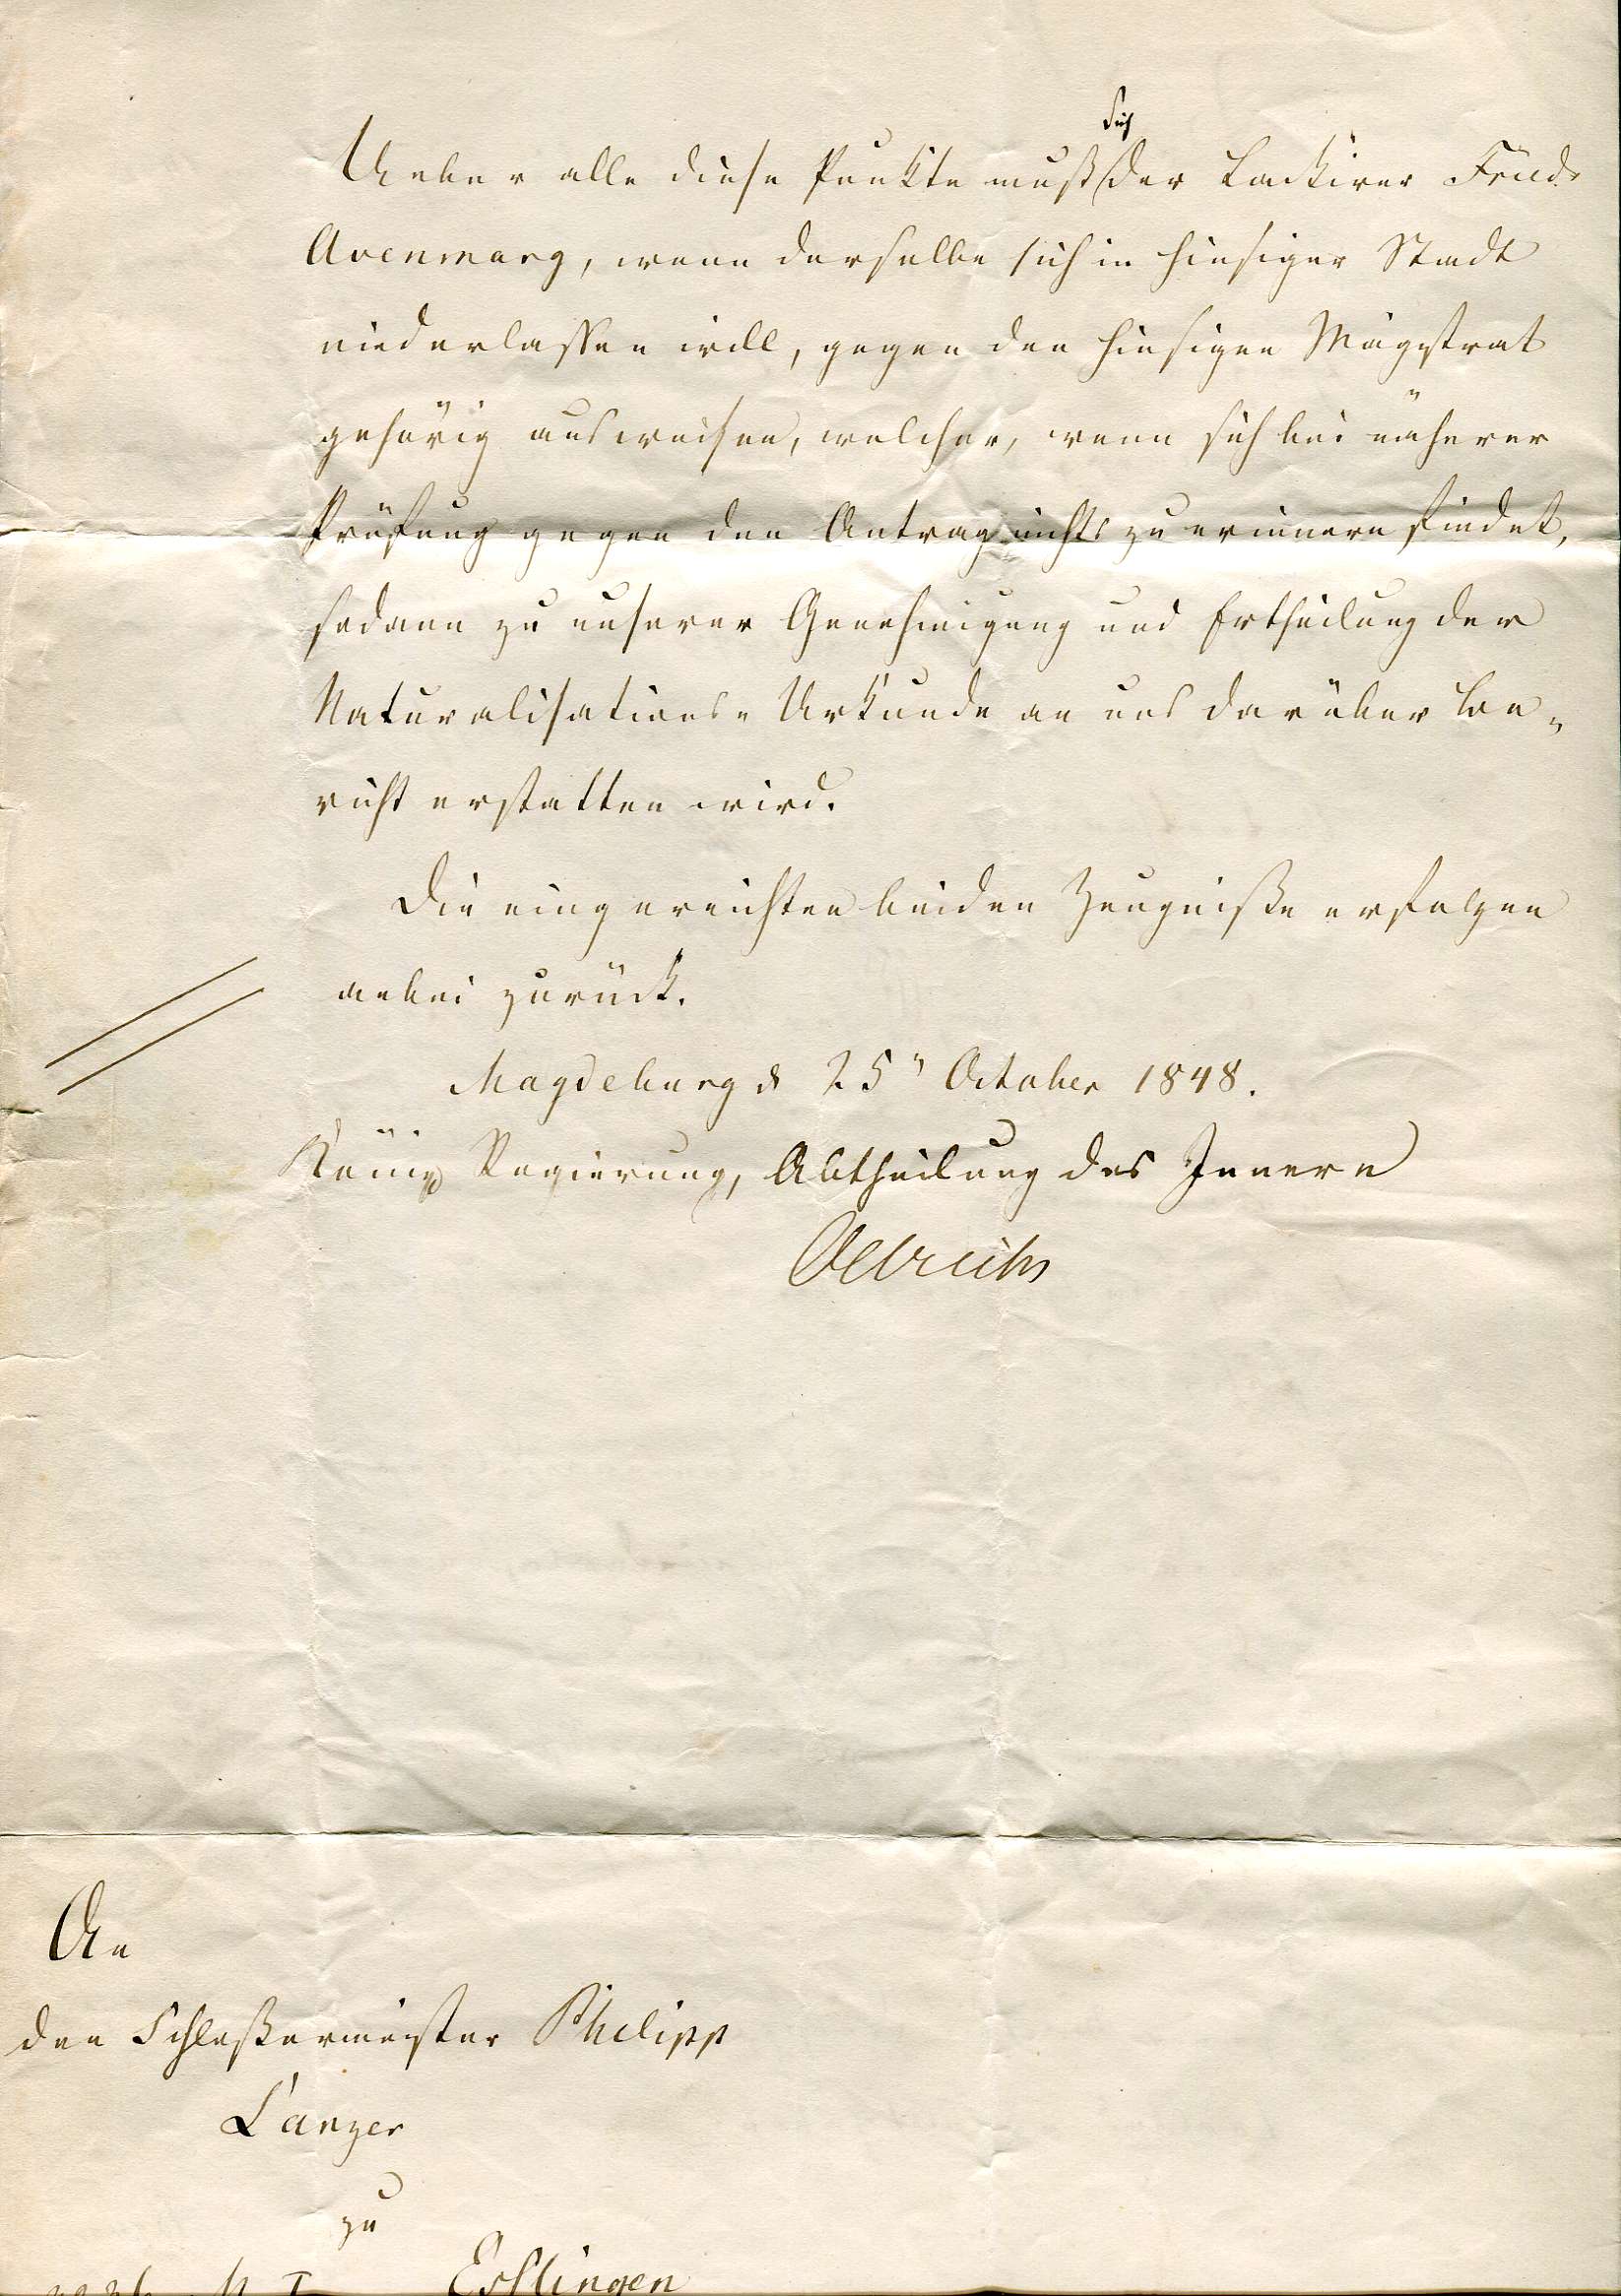 sich
Ueber alle diese Punkte muß der Lackirer Fried.
Avenmarg, wenn derselbe sich in hiesiger Stadt
niederlassen will, gegen den hiesigen Magistrat
gehörig ausweisen, welcher, wenn sich bei näherer
Prüfung gegen den Antrag nichts zu erinnern findet,
sodann zu unserer Genehmigung und Ertheilung der
Naturalisations-Urkunde an uns darüber Be-
richt erstatten wird.
Die eingereichten beiden Zeugniße erfolgen
anbei zurück.
Magdeburg d 25" October 1848.
Königl Regierung, Abtheilung des Innern
Oelrichs
An
den Schloßermeister Philipp
Lanzer
zu
Esslingen